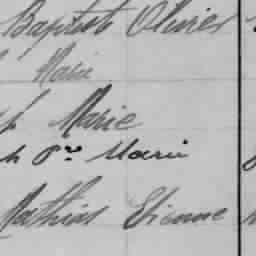 Baptist Olivier
Marie
h Marie
h Pre Marie
Mathias Etienne